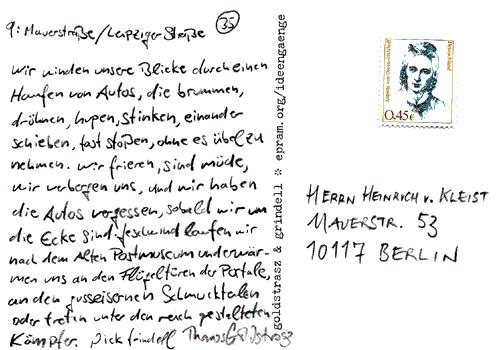 9: Mauerstraße/Leipziger Straße
35
Wir winden unsere Blicke durch einen
Haufen von Autos, die brummen,
dröhnen, hupen, stinken, einander
schieben, fast stoßen, ohne es übel zu
nehmen. Wir frieren, sind müde,
wir verbergen uns, und wir haben
die Autos vergessen, sobald wir um
die Ecke sind. laufen wir
nach dem Alten Postmuseum und wär-
men uns an den Flügeltüren der Portale,
an den gusseisernen Schmucktafeln
oder treten unter den reich gestalteten
Kämpfer. Dick Grindell Thomas Goldstrasz
goldstrasz & grindell * epram.org/ideengaenge
Deutschland
0,45€
HERRN HEINRICH v. KLEIST
MAUERSTR. 53
10117 BERLIN